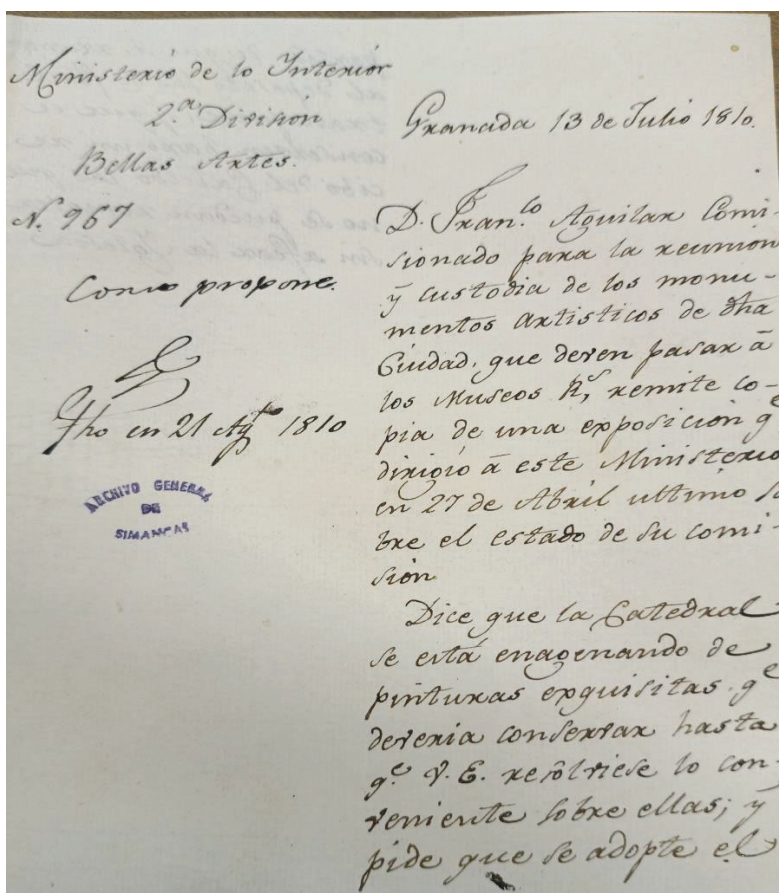 Ministerio de lo Interior
2.ª Division
Bellas Artes.
N. 967
Como propone.
Fho en 21 Agto 1810
ARCHIVO GENERAL
DE
SIMANCAS
Granada 13 de Julio 1810.
D. Fran.co Aguilar Comi-
sionado para la reunion
ÿ custodia de los monu-
mentos artisticos de dha
Ciudad, que deven pasar â
los Museos R.s, remite co-
pia de una exposicion q.e
dirigiò â este Ministerio
en 27 de Abril ultimo so
bre el estado de su comi-
sion
Dice que la Catedral
se está enagenando de
pinturas exquisitas q.e
deveria conservar hasta
q.e V.E. resolviese lo con-
veniente sobre ellas; ÿ
pide que se adopte el